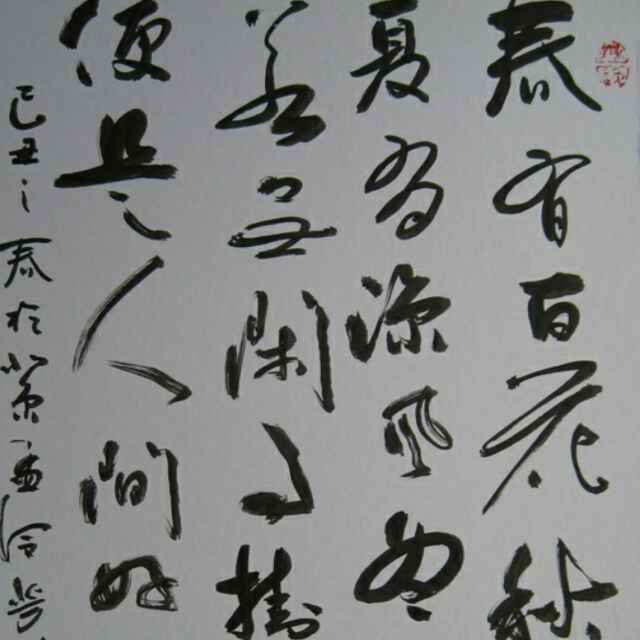 春有百花秋
夏有凉风冬
若无闲事挂
便是人间好
己丑之春於北京孟